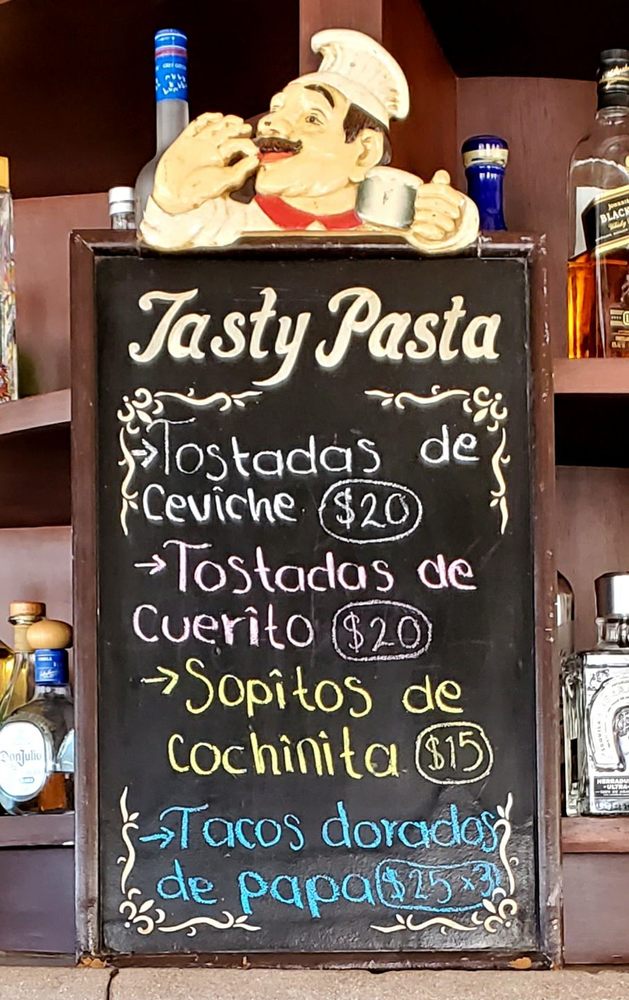 Tasty Pasta
→Tostadas de
Ceviche $20
→Tostadas de
Cuerito $20
→Sopitos de
cochinita $15
→Tacos dorados
de papa $25 x3
DonJulio
BLACK
HERRADURA
ULTRA